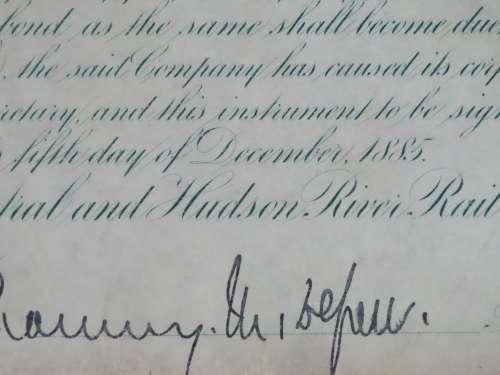 bond as the same shall become due
the said Company has caused its cor
retary, and this instrument to be sig
fifth day of December, 1885.
ral and Hudson River Rail
hauncey. M. Depew.